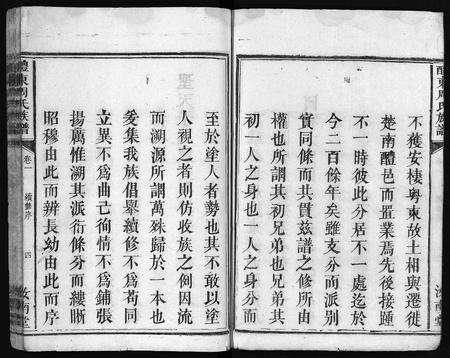 醴東周氏族譜
不獲安棲粵東故土相與遷徙
楚南醴邑而置業焉先後接踵
不一時彼此分居不一處迄於
今二百餘年矣雖支分而派別
實同條而共貫茲譜之修所由
權也所謂其初兄弟也兄弟其
初一人之身也一人之身分而
至於塗人者勢也其不敢以塗
人視之者則仿收族之例因流
而溯源所謂萬殊歸於一本也
爰集我族倡舉續修不爲苟同
立異不爲曲己徇情不爲鋪張
揚厲惟溯其派衍條分而縷晰
昭穆由此而辨長幼由此而序
醴東周氏族譜
卷一
續修序
四
汝南堂
汝南堂